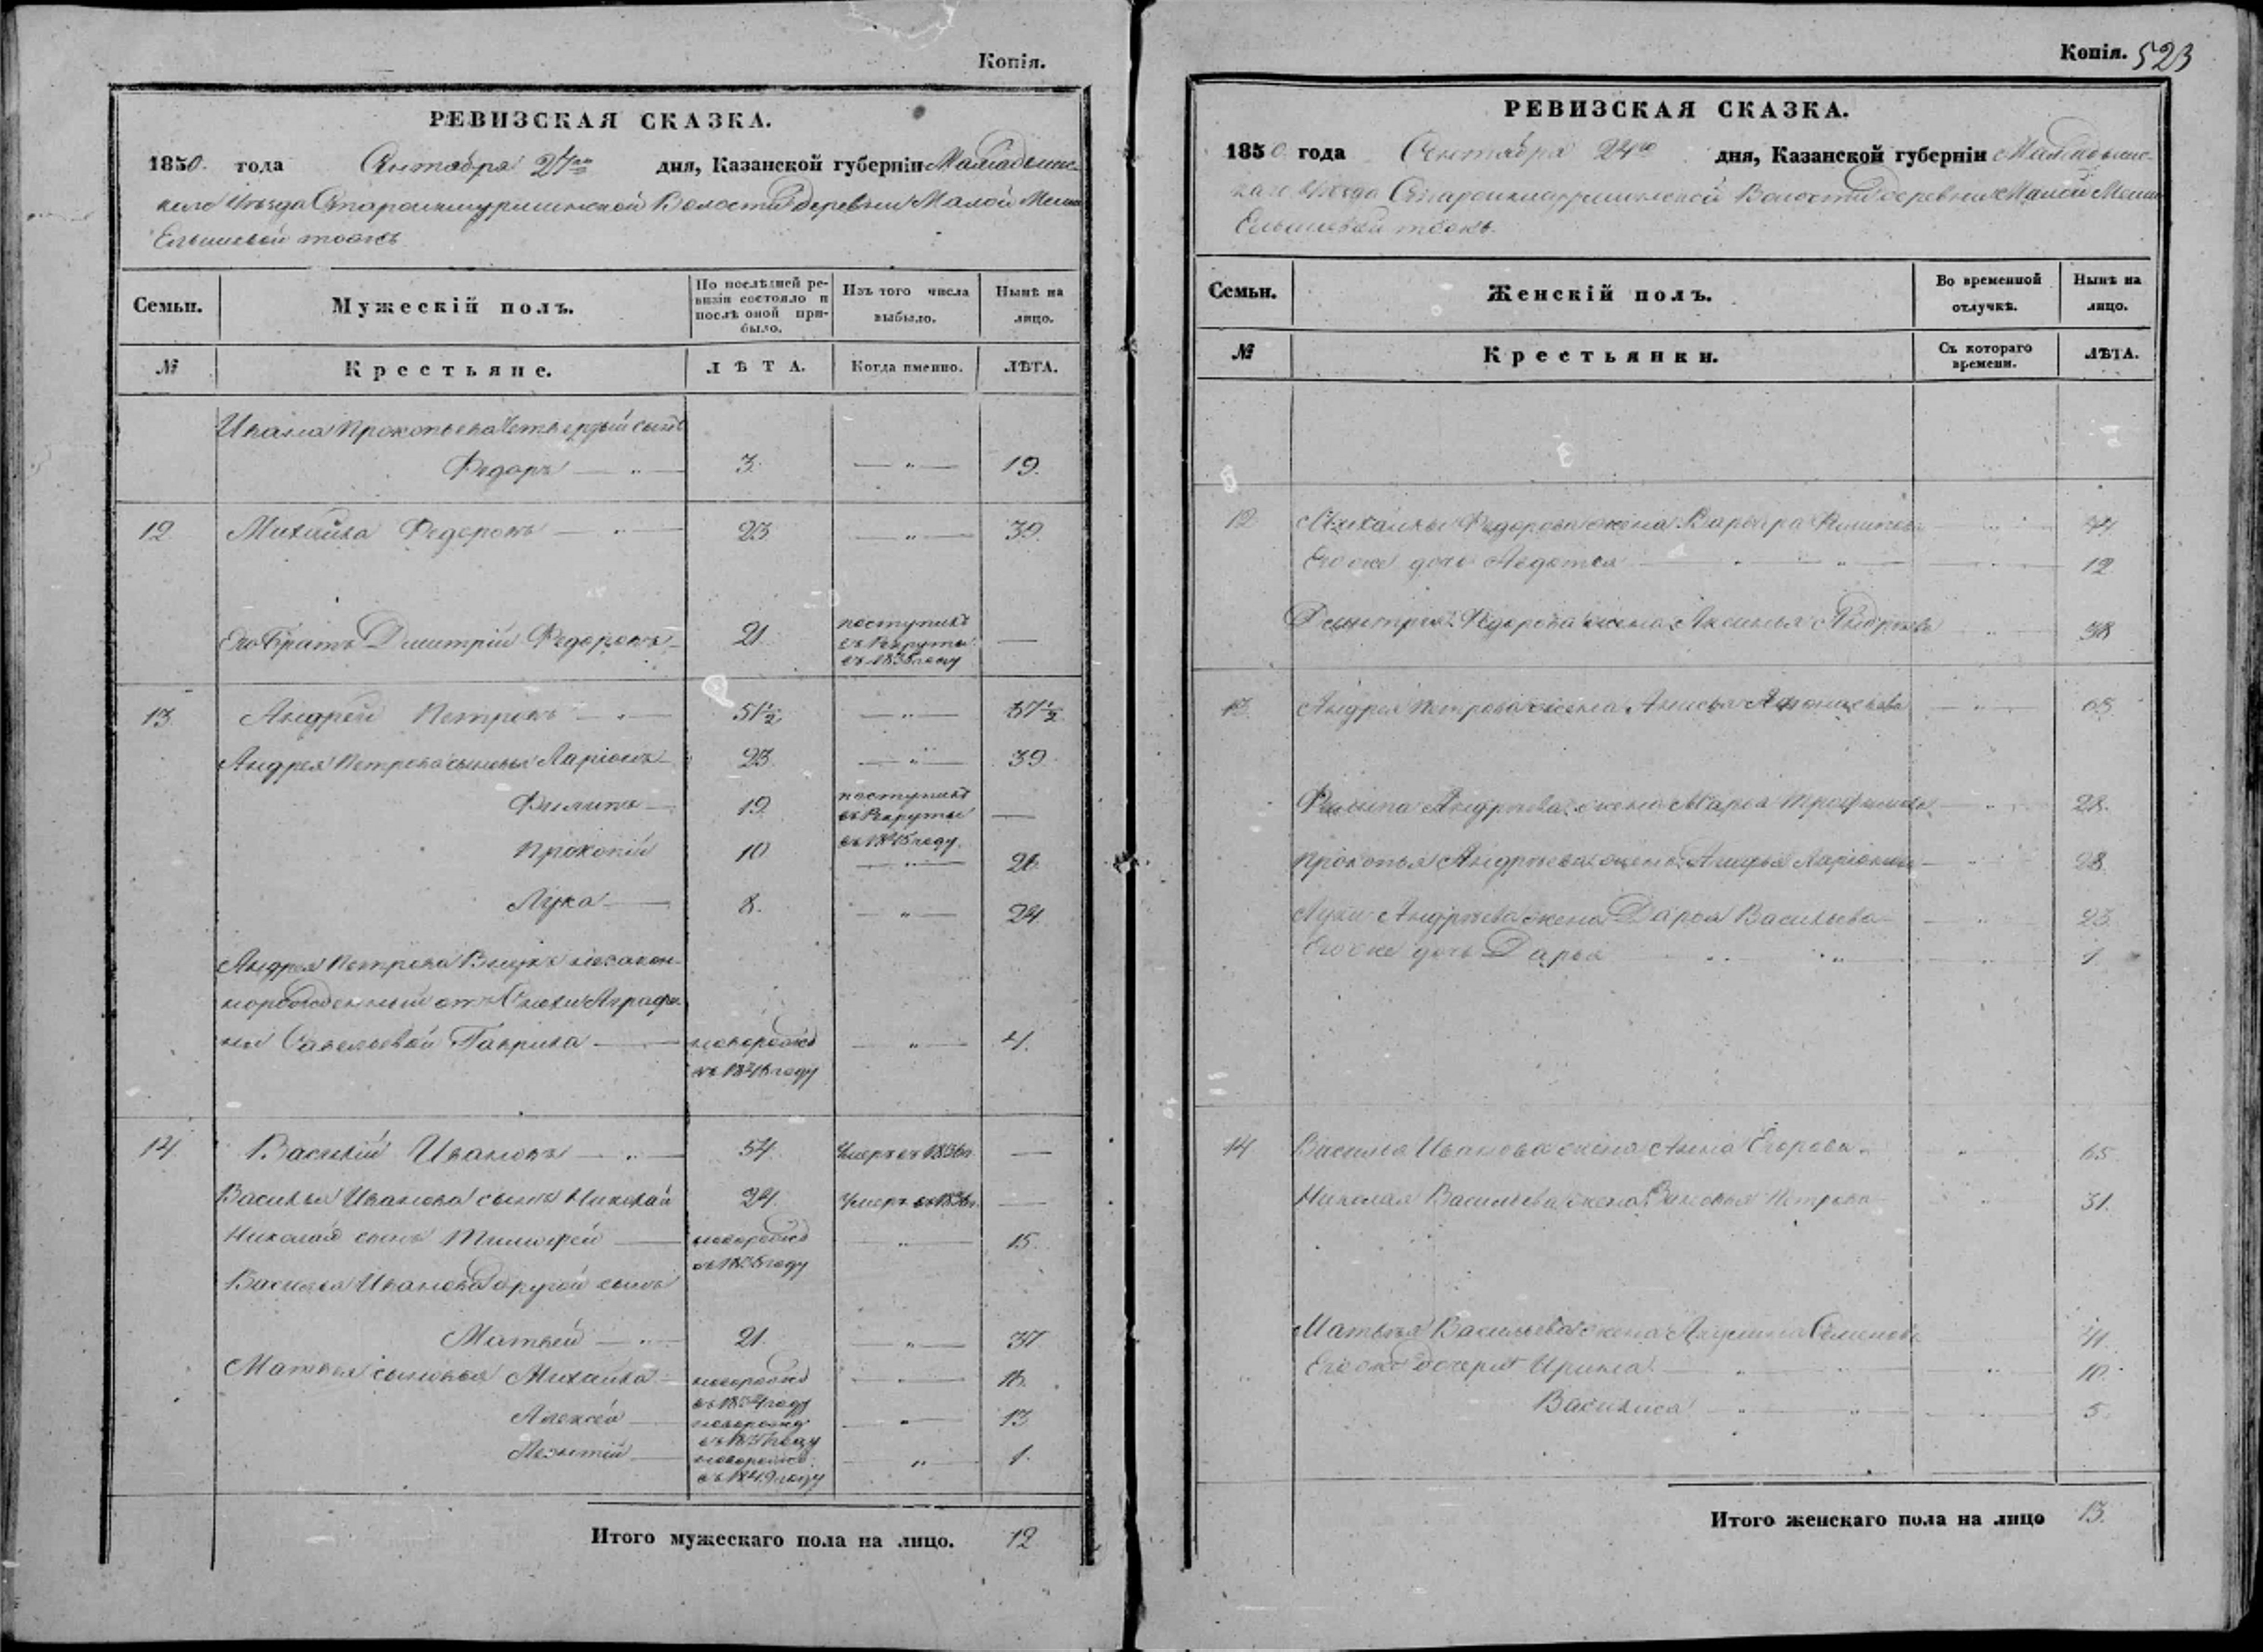 Копія.
РЕВИЗСКАЯ СКАЗКА.
1850. года Сентября 24го дня, Казанской губерніи Мамадышс-
каго Уѣзда Волости деревни Малой
Елышевой тожъ
Семьи. Мужескій полъ. По послѣдней ре-визіи состояло и послѣ оной при-было. Изъ того числа выбыло. Нынѣ на лицо.
№ Крестьяне. ЛѢТА. Когда именно. ЛѢТА.
Ивана Прокопьева четвертый сынъ
Федоръ — „ — 3. — „ — 19.
12 Михайла Федоровъ — „ — 23 — „ — 39.
Его братъ Дмитрій Федоровъ 21 поступилъ въ Рекруты въ 1835 году —
13. Андрей Петровъ — „ — 51½ — „ — 
Андрея Петрова сыновья Ларіонъ 23. — „ — 39.
Филипъ — 19. поступилъ въ Рекруты въ 1845 году. —
Прокопій 10 — „ — 26.
Лука — 8. — „ — 24.
Андрея Петрова Внукъ незакон-
норожденный отъ Снохи Аграфе-
ны Савельевой Гаврила — новорожд въ 1846 году — „ — 4.
14. Василій Ивановъ — „ — 54. Умеръ въ 1836 г. —
Василья Иванова сынъ Николай 24. Умеръ въ —
Николая сынъ Тимофей — новорожд въ 1835 году — „ — 15.
Василья Иванова другой сынъ
Матвей — „ — 21. — „ — 37
Матвея сыновья Михайла — новорожд въ 1834 году — „ — 16.
Алексей — новорожд. въ 1837 году — „ — 13
новорожд. въ 1849 году — „ — 1.
Итого мужескаго пола на лицо. 12
Копія. 523
РЕВИЗСКАЯ СКАЗКА.
1850 года Сентября 24го дня, Казанской губерніи Мамадышс-
каго Уѣзда Волости деревни Малой
Елышевой тожъ.
Семьи. Женскій полъ. Во временной отлучкѣ. Нынѣ на лицо.
№ Крестьянки. Съ котораго времени. ЛѢТА.
12 Михайлы Федорова жена Варвара Филипова — „ — 44
Его же дочь Авдотья — „ — 12
Дмитрія Федорова жена Аксинья Андреева „ 38
13 Андрея Петрова жена Анисья — „ —
Филипа Андреева жена Марѳа Трофимова — „ — 28.
Прокопья Андреева жена Ларіонова — „ — 28.
Луки Андреева жена Дарья Васильева — „ — 23.
Его же дочь Дарья „ „ — „ — 1
14 Василья Иванова жена Анна Егорова „ 65.
Николая Васильева жена Петрова „ 31.
Матвѣя Васильева жена Акулина Семенова „ 41.
Его же дочери Ирина — „ — „ — 10.
Василиса — „ — „ — 5.
Итого женскаго пола на лицо 13.